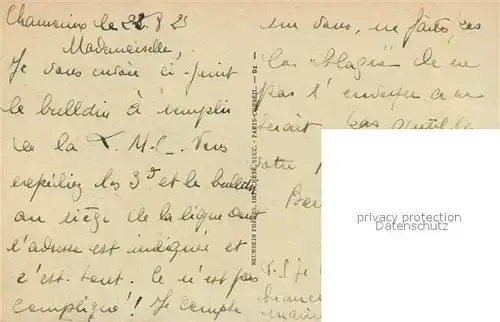 Chamonix le 22.8 25
Mademoiselle,
Je vous envoie ci-joint
le bulletin à remplir
de la T. M. C. Vous
expédiez les 3ᶠ et le bulletin
au siège de la ligue dont
l'adresse est indiquée et
c'est tout. Ce n'est pas
compliqué! Je compte
sur vous, ne faites pas
la "blague" de ne
pas l'envoyer ce ne
serait pas gentil
votre
P.S. je
NEURDEIN FRÈRES, IMP. CRÉTÉ, SUCC. - PARIS-CORBEIL
privacy protection
www.delcampe.net